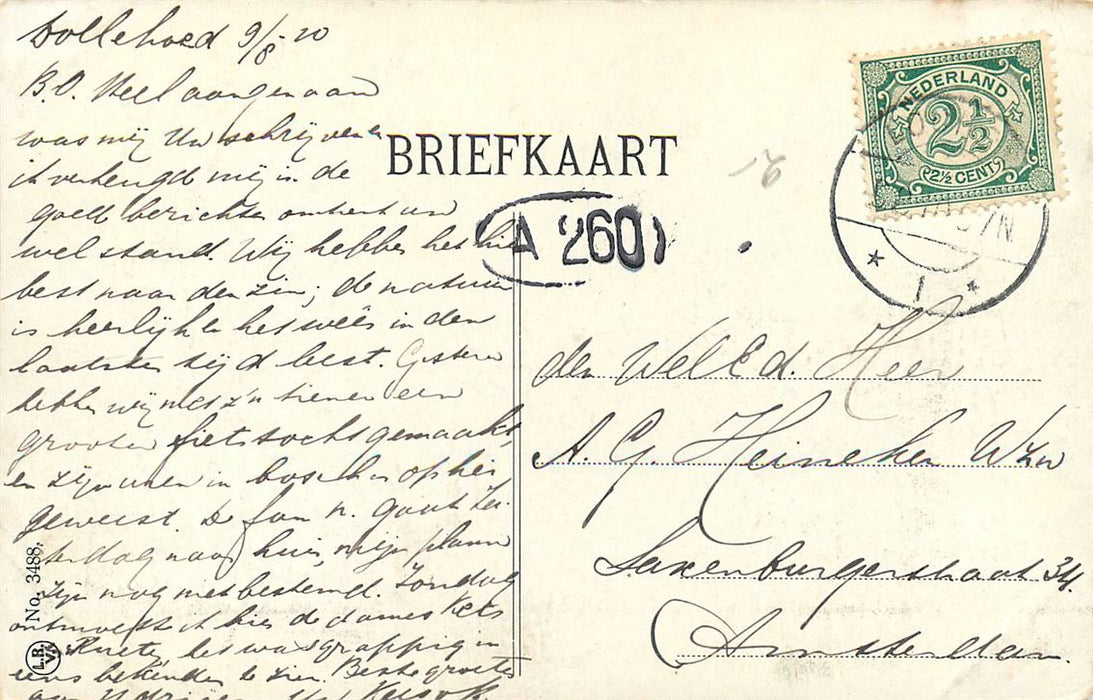 Dollehoed 9/8-20
B.O. Heel aangenaam
was mij Uw schrijven en
ik verheugd mij in de
goede berichten omtrent uw
welstand. Wij hebben het hier
best naar den zin; de natuur
is heerlijk en het weêr in den
laatsten tijd best. Gisteren
hebben wij met z'n tienen een
groote fietstocht gemaakt
en zijn uren in bosch en op hei
geweest. De fam n. gaat Za-
terdag naar huis, mijn plann
zijn nog niet bestemd. Zondag
ontmoette ik hier de dames
het was grappig in
eens bekenden te zien. Beste groeten
aan
BRIEFKAART
A 2601
NEDERLAND
2½
2½ CENT
7N
1
den Wel Ed. Heer
A. G. Heineken Wzn
Saxenburgerstraat 34.
Amsterdam.
No. 3488.